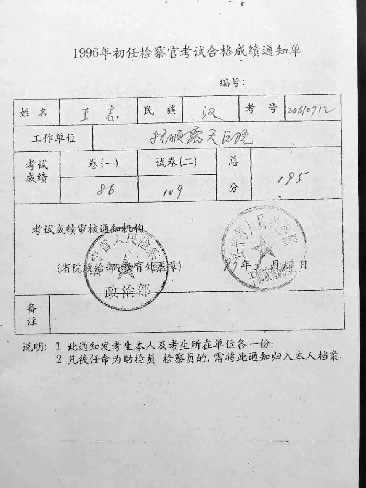 1996年初任检察官考试合格成绩通知单
编号:
姓名 王 民族 汉 考号 20610712
工作单位 抚顺露天区院
考试成绩 卷(一) 试卷(二) 总分 195
86 109
考试成绩审核通知机构
省人民检察
政治部
97年 月 日
备注
说明: 1 此通知发考生本人及考生所在单位各一份.
2 凡被任命为助检员 检察员的,需将此通知归入本人档案.